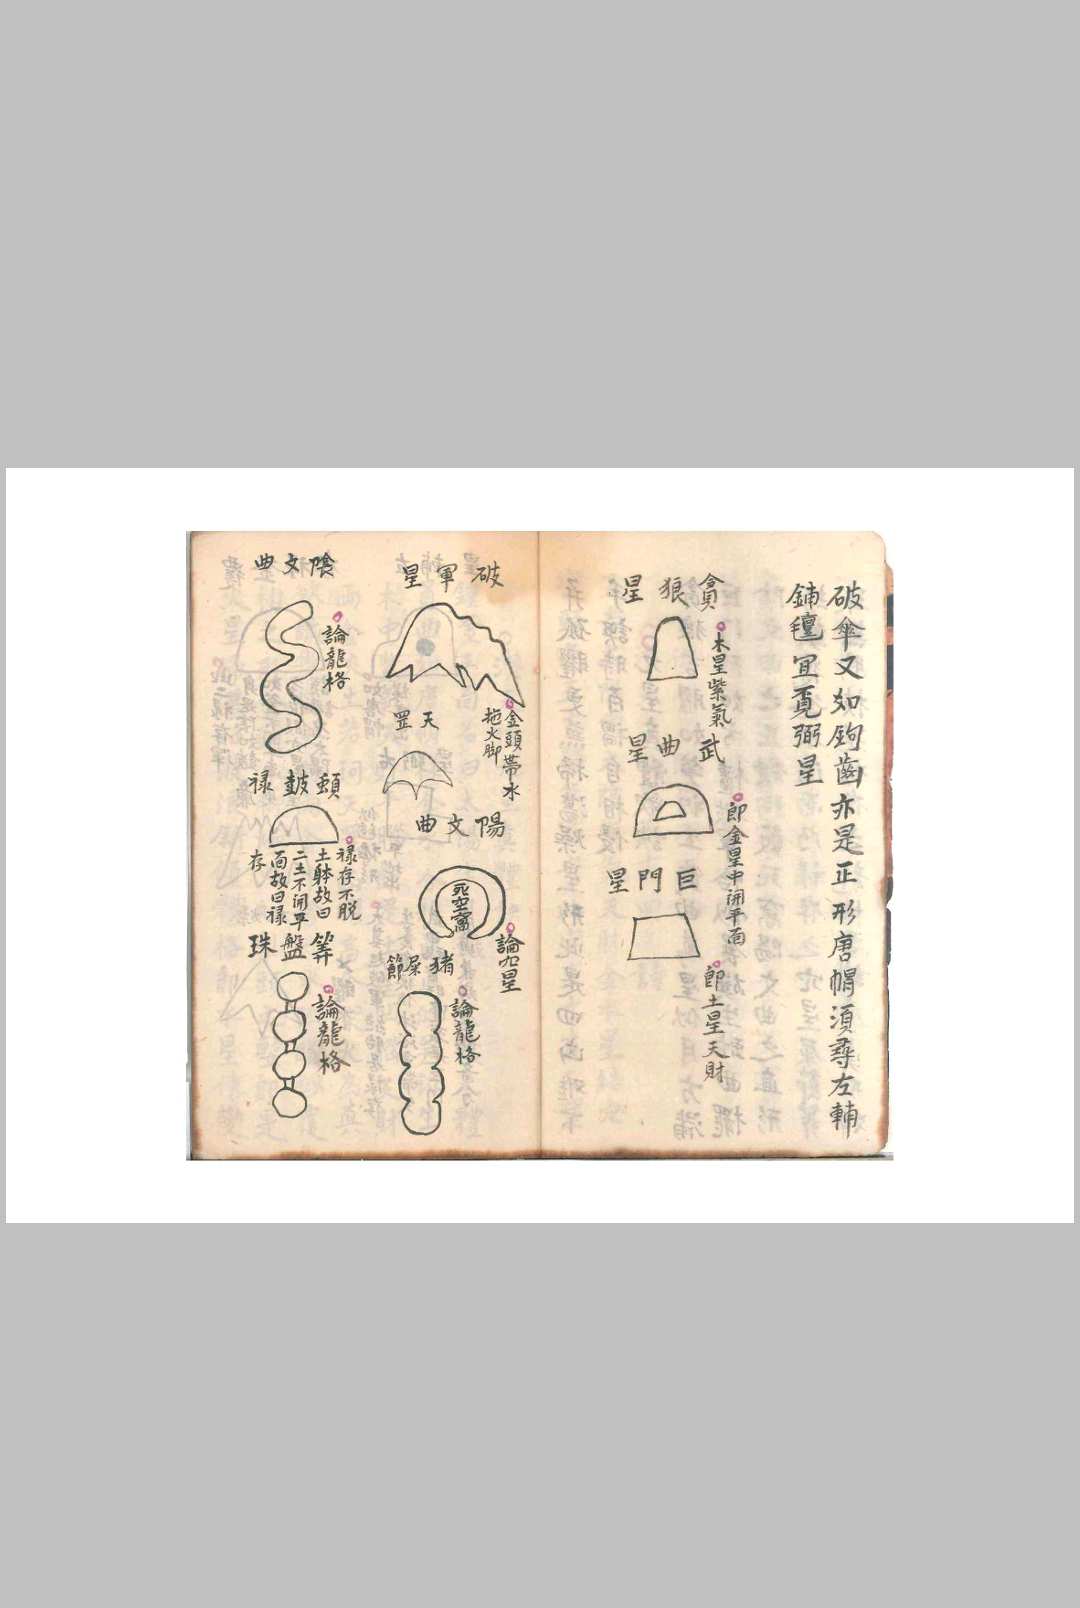 破傘又如鉤齒亦是正形唐帽須尋左輔
鋪氊宜覔弼星
貪狼星
木星紫氣
武曲星
即金星中開平面
巨門星
即土星天財
破軍星
金頭帶水
拖火脚
天罡
陽文曲
死空窩
論穴星
猪屎節
論龍格
陰文曲
論龍格
頓皷禄
禄存不脱
土躰故曰
二土不開平
面故曰禄
存
筭盤珠
論龍格